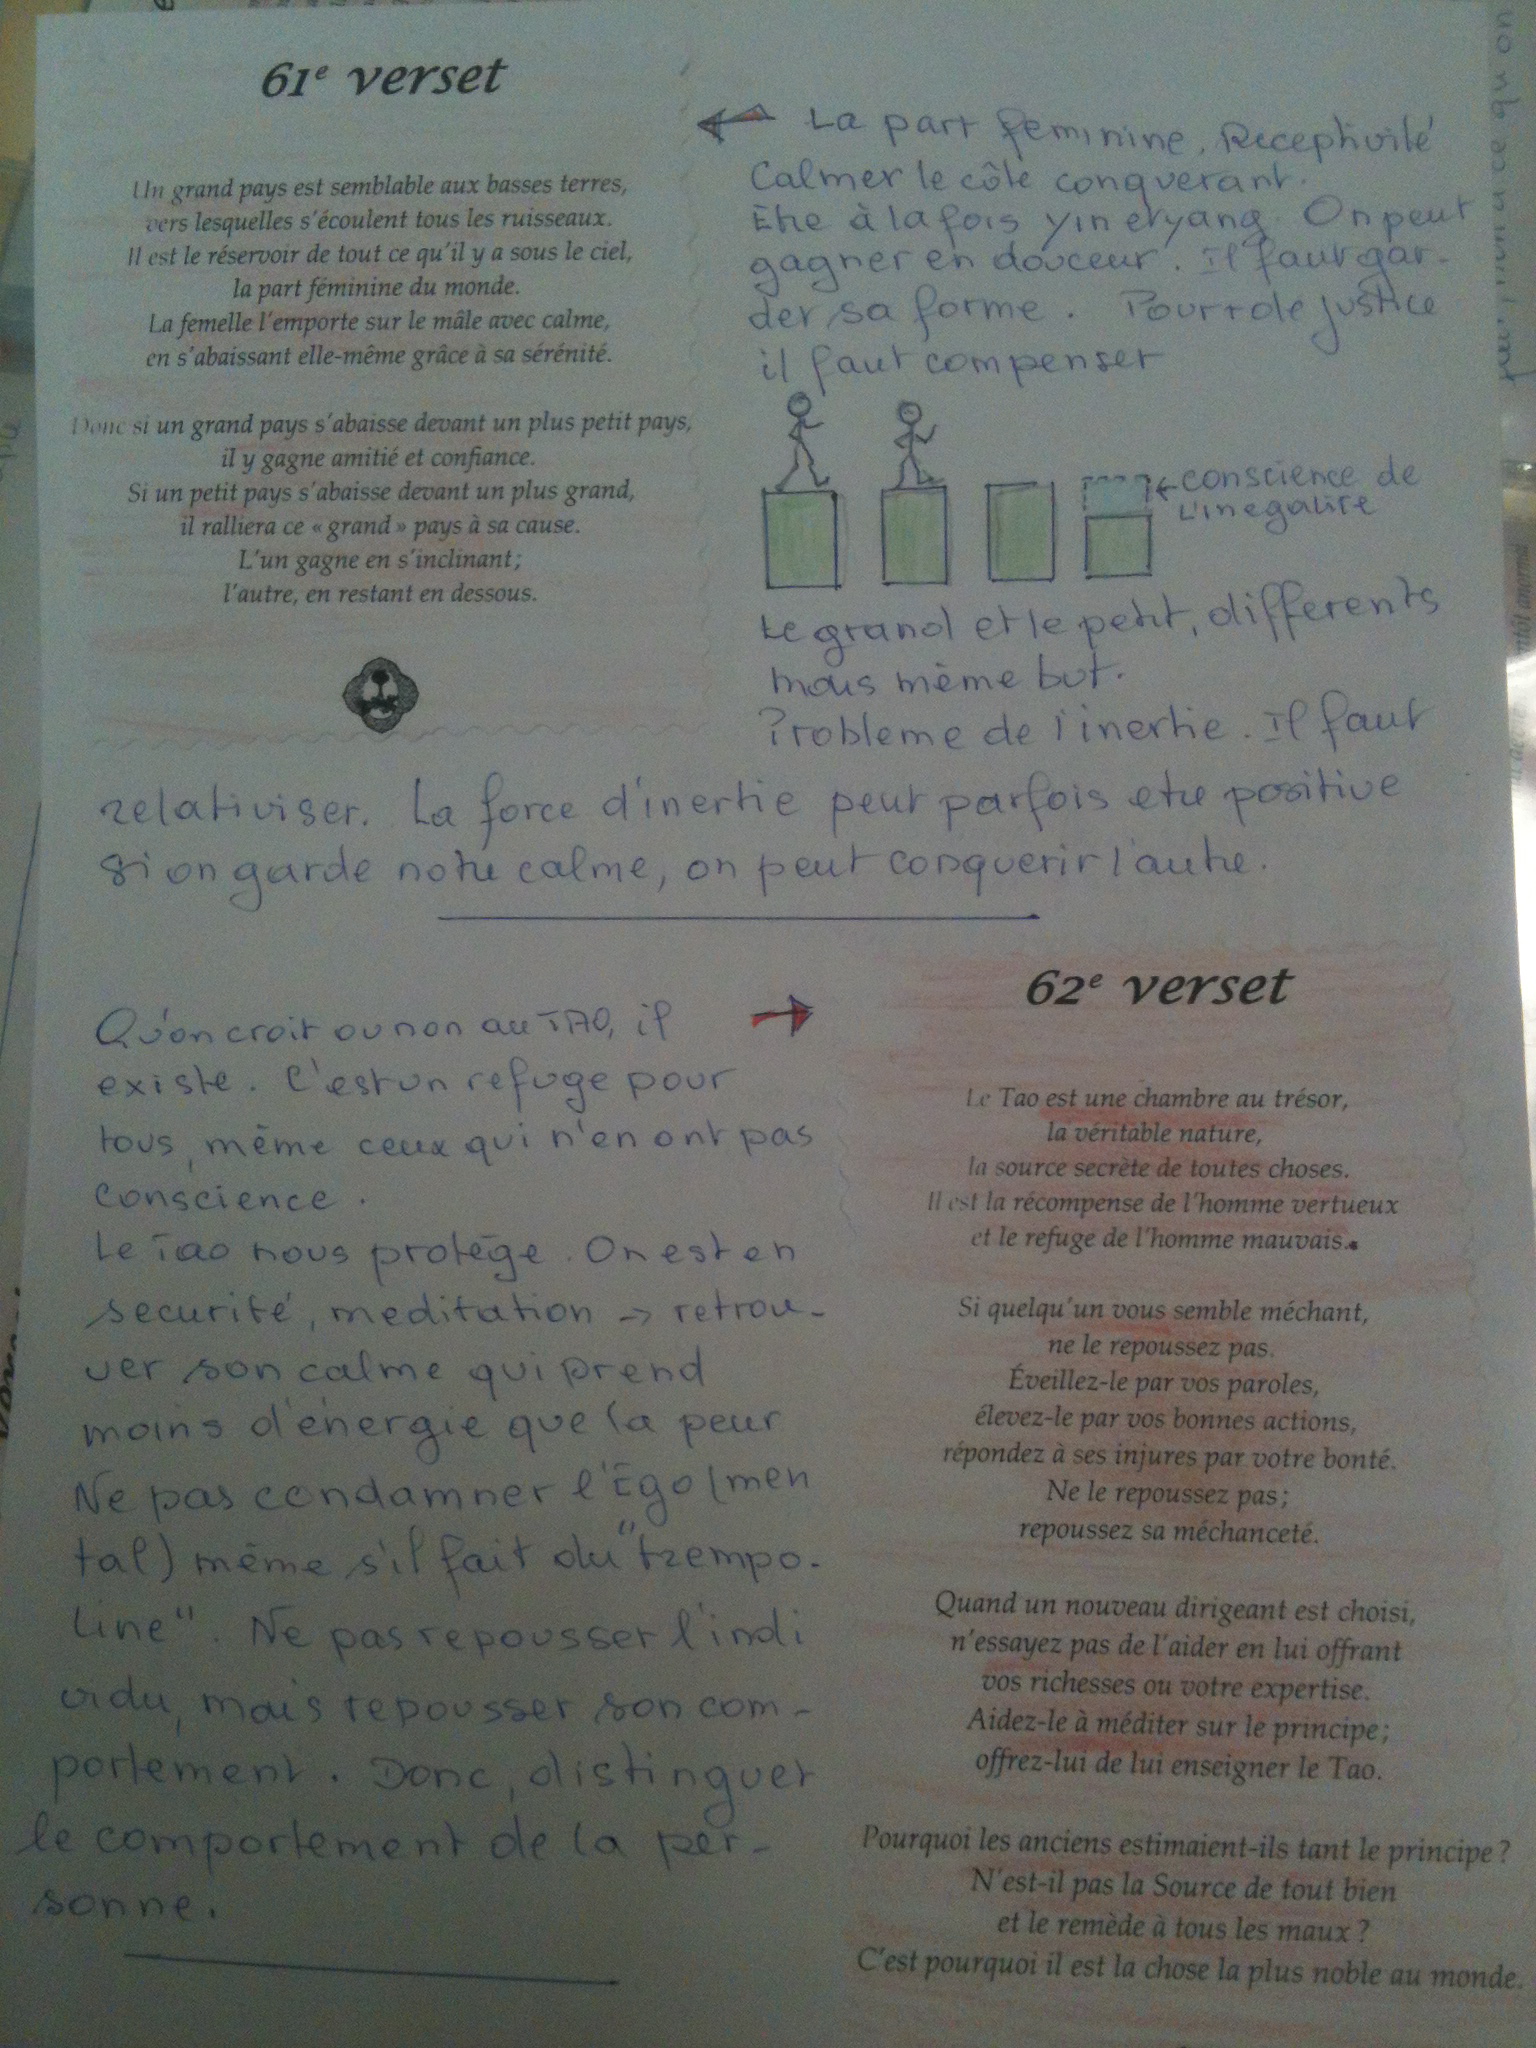 61e verset
Un grand pays est semblable aux basses terres,
vers lesquelles s'écoulent tous les ruisseaux.
Il est le réservoir de tout ce qu'il y a sous le ciel,
la part féminine du monde.
La femelle l'emporte sur le mâle avec calme,
en s'abaissant elle-même grâce à sa sérénité.
Donc si un grand pays s'abaisse devant un plus petit pays,
il y gagne amitié et confiance.
Si un petit pays s'abaisse devant un plus grand,
il ralliera ce « grand » pays à sa cause.
L'un gagne en s'inclinant ;
l'autre, en restant en dessous.
La part feminine. Receptivité
Calmer le côte conquerant.
Etre à la fois yin et yang On peut
gagner en douceur. Il faut gar-
der sa forme. Pour + de justice
il faut compenser
conscience de
L'inegalite
Le grand et le petit, differents
mais même but.
Probleme de l'inertie. Il faut
relativiser. La force d'inertie peut parfois etre positive
si on garde notre calme, on peut conquerir l'autre.
Qu'on croit ou non au TAO, il
existe. C'est un refuge pour
tous, même ceux qui n'en ont pas
conscience.
Le Tao nous protège. On est en
securité, meditation -> retrou-
ver son calme qui prend
moins d'énergie que la peur
Ne pas condamner l'Ego (men
tal) même s'il fait du "trempo-
line". Ne pas repousser l'indi
vidu, mais repousser son com-
portement. Donc, distinguer
le comportement de la per-
sonne.
62e verset
Le Tao est une chambre au trésor,
la véritable nature,
la source secrète de toutes choses.
Il est la récompense de l'homme vertueux
et le refuge de l'homme mauvais.
Si quelqu'un vous semble méchant,
ne le repoussez pas.
Éveillez-le par vos paroles,
élevez-le par vos bonnes actions,
répondez à ses injures par votre bonté.
Ne le repoussez pas ;
repoussez sa méchanceté.
Quand un nouveau dirigeant est choisi,
n'essayez pas de l'aider en lui offrant
vos richesses ou votre expertise.
Aidez-le à méditer sur le principe ;
offrez-lui de lui enseigner le Tao.
Pourquoi les anciens estimaient-ils tant le principe ?
N'est-il pas la Source de tout bien
et le remède à tous les maux ?
C'est pourquoi il est la chose la plus noble au monde.